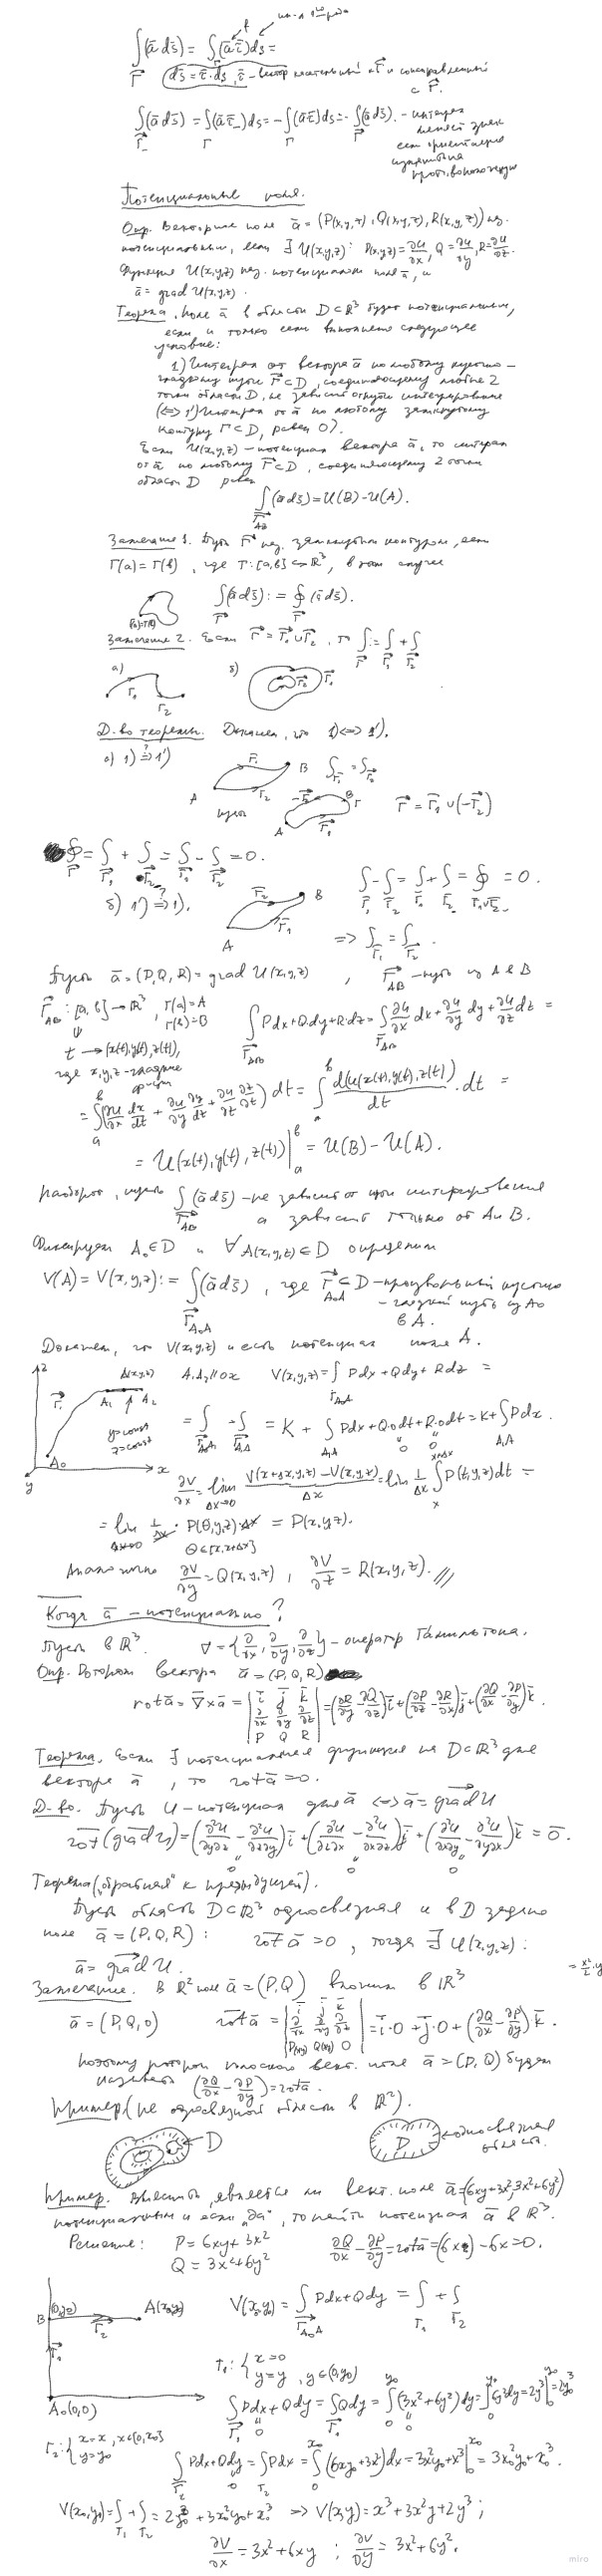 ∫(ā ds̄) = ∫(ā τ̄)ds =
Γ⃗ ds̄ = τ̄·ds, τ̄ – вектор касательный к Γ⃗ и сонаправленный
с Γ⃗.
∫(ā ds̄) = ∫(ā τ̄₋)ds = -∫(ā τ̄)ds = -∫(ā ds̄). – интеграл
меняет знак
если ориентацию
противоположную
Потенциальные поля.
Опр. Векторное поле ā = (P(x,y,z), Q(x,y,z), R(x,y,z)) наз.
потенциальным, если ∃ U(x,y,z): P(x,y,z) = ∂u/∂x, Q = ∂u/∂y, R = ∂u/∂z.
Функция U(x,y,z) наз. потенциалом поля ā, и
ā = grad U(x,y,z).
Теорема. Поле ā в области D⊂R³ будет потенциальным,
если и только если выполнено следующее
условие:
1) Интеграл от вектора ā по любому кусочно-
гладкому пути Γ⃗⊂D, соединяющему любые 2
точки области D, не зависит от пути интегрирования
(⇔ 1') Интеграл от ā по любому замкнутому
контуру Γ⊂D, равен 0).
Если U(x,y,z) – потенциал вектора ā, то интеграл
от ā по любому Γ⃗⊂D, соединяющему 2 точки
области D равен
∫(ā ds̄) = U(B) - U(A).
AB
Замечание 1. Путь Γ⃗ наз. замкнутым контуром, если
Γ(a) = Γ(b), где Γ: [a,b] → R³, в этом случае
Γ(a)=Γ(b)
∫(ā ds̄) := ∮(ā ds̄).
Замечание 2. Если Γ⃗ = Γ⃗₁ ∪ Γ⃗₂, то ∫ := ∫ + ∫
а) б)
Γ₁ Γ₂
Д-во теоремы. Докажем, что 1) ⇔ 1').
а) 1) ⇒ 1')
A B Γ₁ Γ₂ ∫Γ₁ = ∫Γ₂
Путь Γ⃗ = Γ⃗₁ ∪ (-Γ⃗₂)
∮ = ∫ + ∫ = ∫ - ∫ = 0.
б) 1') ⇒ 1).
∫ - ∫ = ∫ + ∫ = ∮ = 0.
⇒ ∫Γ₁ = ∫Γ₂.
Пусть ā = (P,Q,R) = grad U(x,y,z), Γ⃗AB – путь из A в B
Γ⃗AB: [a,b] → R³, Γ(a) = A
Γ(b) = B
t → (x(t), y(t), z(t)),
где x,y,z – гладкие
функции
∫ Pdx + Qdy + Rdz = ∫ ∂u/∂x dx + ∂u/∂y dy + ∂u/∂z dz =
= ∫(∂u/∂x dx/dt + ∂u/∂y dy/dt + ∂u/∂z dz/dt) dt = ∫ d(u(x(t),y(t),z(t)))/dt · dt =
= U(x(t), y(t), z(t))|ₐᵇ = U(B) - U(A).
Наоборот, пусть ∫(ā ds̄) – не зависит от пути интегрирования
а зависит только от A и B.
Фиксируем A₀∈D и ∀ A(x,y,z)∈D определим
V(A) = V(x,y,z) := ∫(ā ds̄), где Γ⃗⊂D – произвольный кусочно
– гладкий путь из A₀
в A.
Докажем, что V(x,y,z) и есть потенциал поля A.
A(x,y,z) A₁A₂ ∥ ox V(x,y,z) = ∫ Pdx + Qdy + Rdz =
y=const
z=const
= ∫ + ∫ = K + ∫ Pdx + Q·0dt + R·0dt = K + ∫Pdx.
∂V/∂x = lim (V(x+Δx,y,z) - V(x,y,z))/Δx = lim 1/Δx ∫P(t,y,z)dt =
= lim 1/Δx · P(θ,y,z)·Δx = P(x,y,z).
Δx→0 θ∈[x,x+Δx]
Аналогично ∂V/∂y = Q(x,y,z), ∂V/∂z = R(x,y,z). ///
Когда ā – потенциально?
Пусть в R³. ∇ = {∂/∂x, ∂/∂y, ∂/∂z} – оператор Гамильтона.
Опр. Ротором вектора ā = (P,Q,R)
rot ā = ∇̄×ā = | i j k ; ∂/∂x ∂/∂y ∂/∂z ; P Q R | = (∂R/∂y - ∂Q/∂z)i + (∂P/∂z - ∂R/∂x)j + (∂Q/∂x - ∂P/∂y)k.
Теорема. Если ∃ потенциальная функция на D⊂R³ для
вектора ā, то rot ā = 0.
Д-во. Пусть U – потенциал для ā ⇔ ā = grad U
rot(grad u) = (∂²u/∂y∂z - ∂²u/∂z∂y)i + (∂²u/∂z∂x - ∂²u/∂x∂z)j + (∂²u/∂x∂y - ∂²u/∂y∂x)k = 0̄.
Теорема („обратная“ к предыдущей).
Пусть область D⊂R³ односвязная и в D задано
поле ā = (P,Q,R): rot ā = 0, тогда ∃ U(x,y,z):
ā = grad U.
= x²/2·y
Замечание. В R² поле ā = (P,Q) вложим в R³
ā = (P,Q,0) rot ā = | i j k ; ∂/∂x ∂/∂y ∂/∂z ; P(x,y) Q(x,y) 0 | = i·0 + j·0 + (∂Q/∂x - ∂P/∂y)k.
Поэтому ротором плоского вект. поля ā = (P,Q) будем
называть (∂Q/∂x - ∂P/∂y) = rot ā.
Пример (не односвязной области в R²).
D
D односвязная
область.
Пример. Выяснить, является ли вект. поле ā = (6xy+3x², 3x²+6y²)
потенциальным и если „да“, то найти потенциал ā в R³.
Решение: P = 6xy + 3x²
Q = 3x² + 6y²
∂Q/∂x - ∂P/∂y = rot ā = (6x) - 6x = 0.
B (0,y₀) A(x₀,y₀) Γ₂ Γ₁
A₀(0,0)
V(x₀,y₀) = ∫ Pdx + Qdy = ∫ + ∫
Γ₁: { x=0
y=y, y∈(0,y₀)
∫ Pdx + Qdy = ∫Qdy = ∫(3x²+6y²)dy = ∫6y²dy = 2y³|₀^y₀ = 2y₀³
Γ₂: { x=x, x∈(0,x₀)
y=y₀
∫ Pdx + Qdy = ∫Pdx = ∫(6xy₀+3x²)dx = 3x²y₀ + x³|₀^x₀ = 3x₀²y₀ + x₀³.
V(x₀,y₀) = ∫ + ∫ = 2y₀³ + 3x₀²y₀ + x₀³ ⇒ V(x,y) = x³ + 3x²y + 2y³;
∂V/∂x = 3x² + 6xy ; ∂V/∂y = 3x² + 6y².
miro